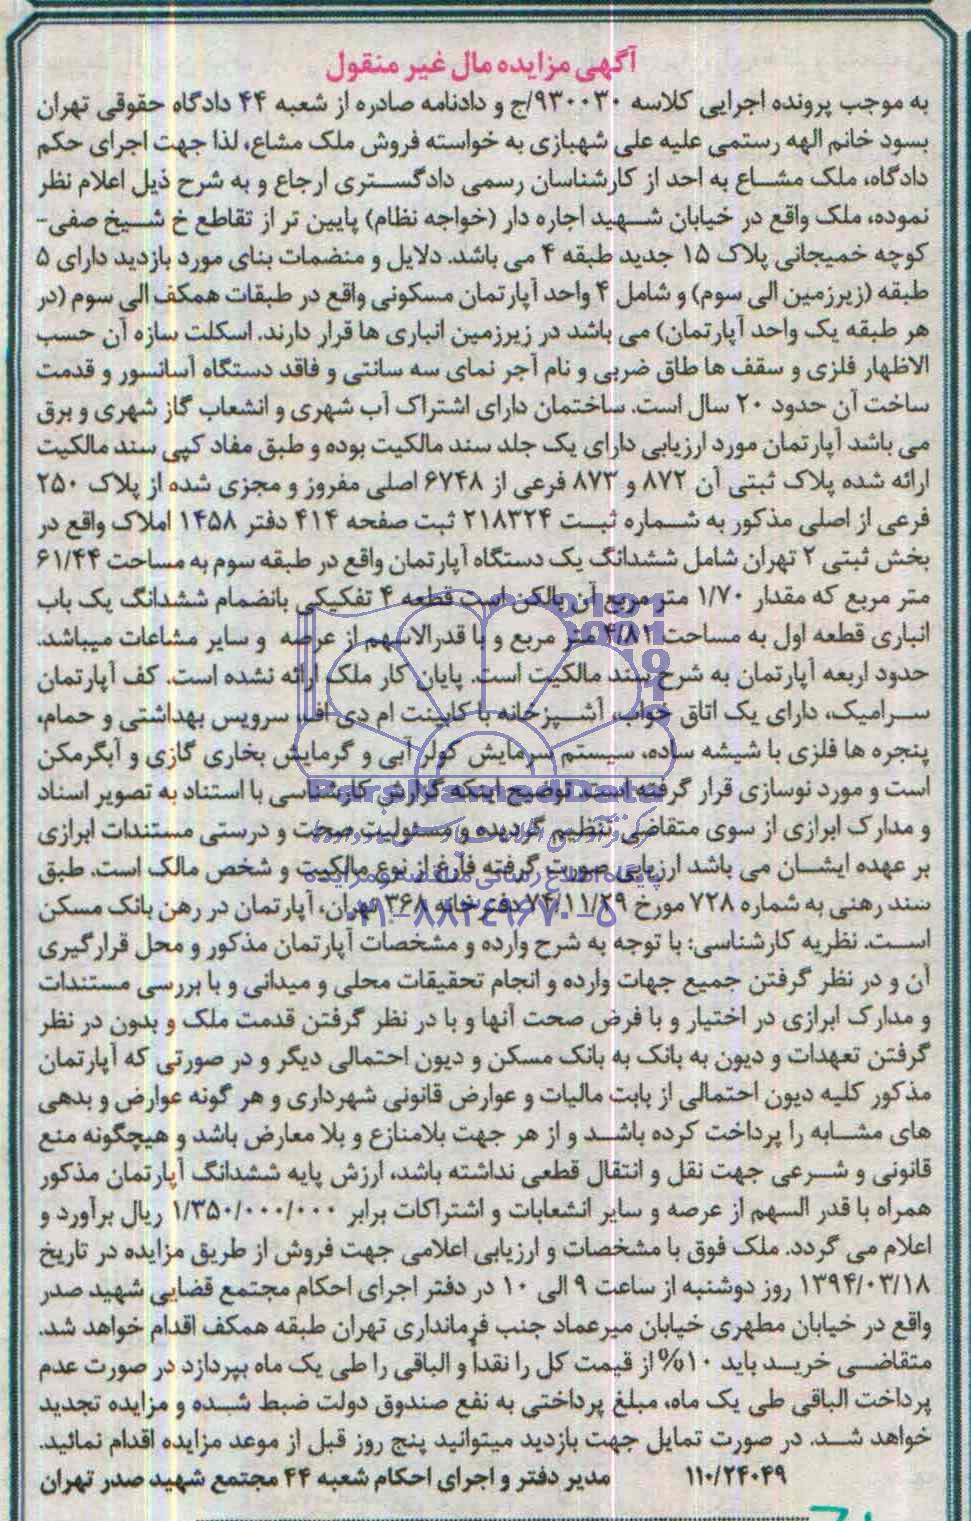 آگهی مزایده مال غیر منقول
به موجب پرونده اجرایی کلاسه ۹۳۰۰۳۰/ج و دادنامه صادره از شعبه ۴۴ دادگاه حقوقی تهران
بسود خانم الهه رستمی علیه علی شهبازی به خواسته فروش ملک مشاع، لذا جهت اجرای حکم
دادگاه، ملک مشاع به احد از کارشناسان رسمی دادگستری ارجاع و به شرح ذیل اعلام نظر
نموده، ملک واقع در خیابان شهید اجاره دار (خواجه نظام) پایین تر از تقاطع خ شیخ صفی-
کوچه خمیجانی پلاک ۱۵ جدید طبقه ۴ می باشد. دلایل و منضمات بنای مورد بازدید دارای ۵
طبقه (زیرزمین الی سوم) و شامل ۴ واحد آپارتمان مسکونی واقع در طبقات همکف الی سوم (در
هر طبقه یک واحد آپارتمان) می باشد در زیرزمین انباری ها قرار دارند. اسکلت سازه آن حسب
الاظهار فلزی و سقف ها طاق ضربی و نام آجر نمای سه سانتی و فاقد دستگاه آسانسور و قدمت
ساخت آن حدود ۲۰ سال است. ساختمان دارای اشتراک آب شهری و انشعاب گاز شهری و برق
می باشد آپارتمان مورد ارزیابی دارای یک جلد سند مالکیت بوده و طبق مفاد کپی سند مالکیت
ارائه شده پلاک ثبتی آن ۸۷۲ و ۸۷۳ فرعی از ۶۷۴۸ اصلی مفروز و مجزی شده از پلاک ۲۵۰
فرعی از اصلی مذکور به شماره ثبت ۲۱۸۳۲۴ ثبت صفحه ۴۱۴ دفتر ۱۴۵۸ املاک واقع در
بخش ثبتی ۲ تهران شامل ششدانگ یک دستگاه آپارتمان واقع در طبقه سوم به مساحت ۶۱/۴۴
متر مربع که مقدار ۱/۷۰ متر مربع آن بالکن است قطعه ۴ تفکیکی بانضمام ششدانگ یک باب
انباری قطعه اول به مساحت ۴/۸۲ متر مربع و با قدرالاسهم از عرصه و سایر مشاعات میباشد.
حدود اربعه آپارتمان به شرح سند مالکیت است. پایان کار ملک ارائه نشده است. کف آپارتمان
سرامیک، دارای یک اتاق خواب، آشپزخانه با کابینت ام دی اف، سرویس بهداشتی و حمام،
پنجره ها فلزی با شیشه ساده، سیستم سرمایش کولر آبی و گرمایش بخاری گازی و آبگرمکن
است و مورد نوسازی قرار گرفته است. توضیح اینکه گزارش کارشناسی با استناد به تصویر اسناد
و مدارک ابرازی از سوی متقاضی تنظیم گردیده و مسئولیت صحت و درستی مستندات ابرازی
بر عهده ایشان می باشد ارزیابی صورت گرفته فارغ از نوع مالکیت و شخص مالک است. طبق
سند رهنی به شماره ۷۲۸ مورخ ۷۴/۱۱/۲۹ دفترخانه ۳۶۸ تهران، آپارتمان در رهن بانک مسکن
است. نظریه کارشناسی: با توجه به شرح وارده و مشخصات آپارتمان مذکور و محل قرارگیری
آن و در نظر گرفتن جمیع جهات وارده و انجام تحقیقات محلی و میدانی و با بررسی مستندات
و مدارک ابرازی در اختیار و با فرض صحت آنها و با در نظر گرفتن قدمت ملک و بدون در نظر
گرفتن تعهدات و دیون به بانک به بانک مسکن و دیون احتمالی دیگر و در صورتی که آپارتمان
مذکور کلیه دیون احتمالی از بابت مالیات و عوارض قانونی شهرداری و هر گونه عوارض و بدهی
های مشابه را پرداخت کرده باشد و از هر جهت بلامنازع و بلا معارض باشد و هیچگونه منع
قانونی و شرعی جهت نقل و انتقال قطعی نداشته باشد، ارزش پایه ششدانگ آپارتمان مذکور
همراه با قدر السهم از عرصه و سایر انشعابات و اشتراکات برابر ۱/۳۵۰/۰۰۰/۰۰۰ ریال برآورد و
اعلام می گردد. ملک فوق با مشخصات و ارزیابی اعلامی جهت فروش از طریق مزایده در تاریخ
۱۳۹۴/۰۳/۱۸ روز دوشنبه از ساعت ۹ الی ۱۰ در دفتر اجرای احکام مجتمع قضایی شهید صدر
واقع در خیابان مطهری خیابان میرعماد جنب فرمانداری تهران طبقه همکف اقدام خواهد شد.
متقاضی خرید باید ۱۰% از قیمت کل را نقداً و الباقی را طی یک ماه بپردازد در صورت عدم
پرداخت الباقی طی یک ماه، مبلغ پرداختی به نفع صندوق دولت ضبط شده و مزایده تجدید
خواهد شد. در صورت تمایل جهت بازدید میتوانید پنج روز قبل از موعد مزایده اقدام نمائید.
۱۱۰/۲۴۰۴۹ مدیر دفتر و اجرای احکام شعبه ۴۴ مجتمع شهید صدر تهران
ParsNamadData
پایگاه اطلاع رسانی مناقصه و مزایده
۰۲۱-۸۸۳۴۹۶۷۰-۵